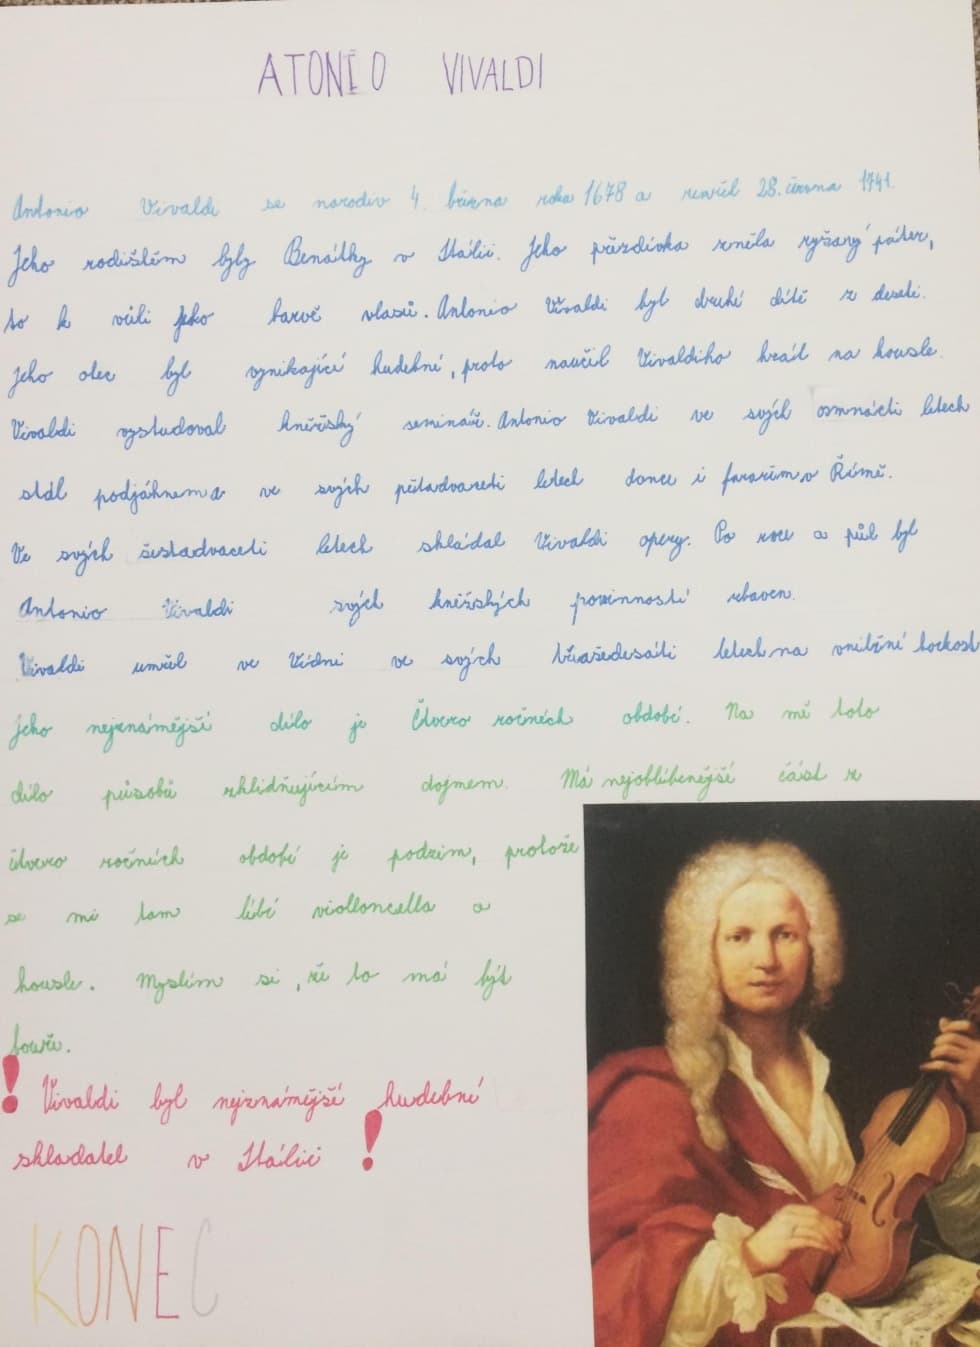 ATONIO VIVALDI
Antonio Vivaldi se narodiv 4. března roku 1678 a zemřel 28. června 1741.
Jeho rodištěm byly Benátky v Itálii. Jeho přezdívka zněla ryžaný páter,
to k vůli jeho barvě vlasů. Antonio Vivaldi byl druhé dítě z deseti.
Jeho otec byl vynikající hudební, proto naučil Vivaldiho hrát na housle.
Vivaldi vystudoval kněžský seminář. Antonio Vivaldi ve svých osmnácti letech
stál podjáhnem a ve svých pětadvaceti letech donce i farařim v Římě.
Ve svých šestadvaceti letech skládal Vivaldi opery. Po roce a půl byl
Antonio Vivaldi svých kněžských povinností zbaven.
Vivaldi umřel ve Vídni ve svých třiašedesáti letech na vnitřní horkost
Jeho nejznámější dílo je Čtvero ročních období. Na mě toto
dílo působů zklidňujícím dojmem. Má nejoblíbenější část z
čtvero ročních období je podzim, protože
se mi tam líbí violloncella a
housle. Myslím si, že to má být
bouře.
! Vivaldi byl nejznámější hudební
skladatel v Itálii !
KONEC